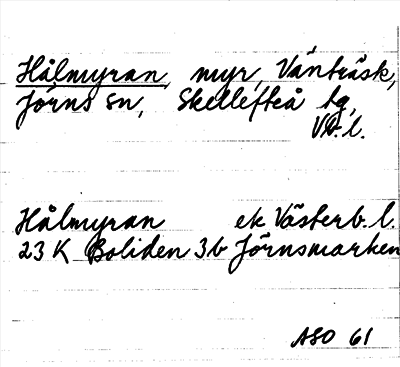 Hålmyran, myr, Vänträsk,
Jörns sn, Skellefteå tg,
VB.l.
Hålmyran ek Västerb.l.
23 K Boliden 3b Jörnsmarken
ASO 61